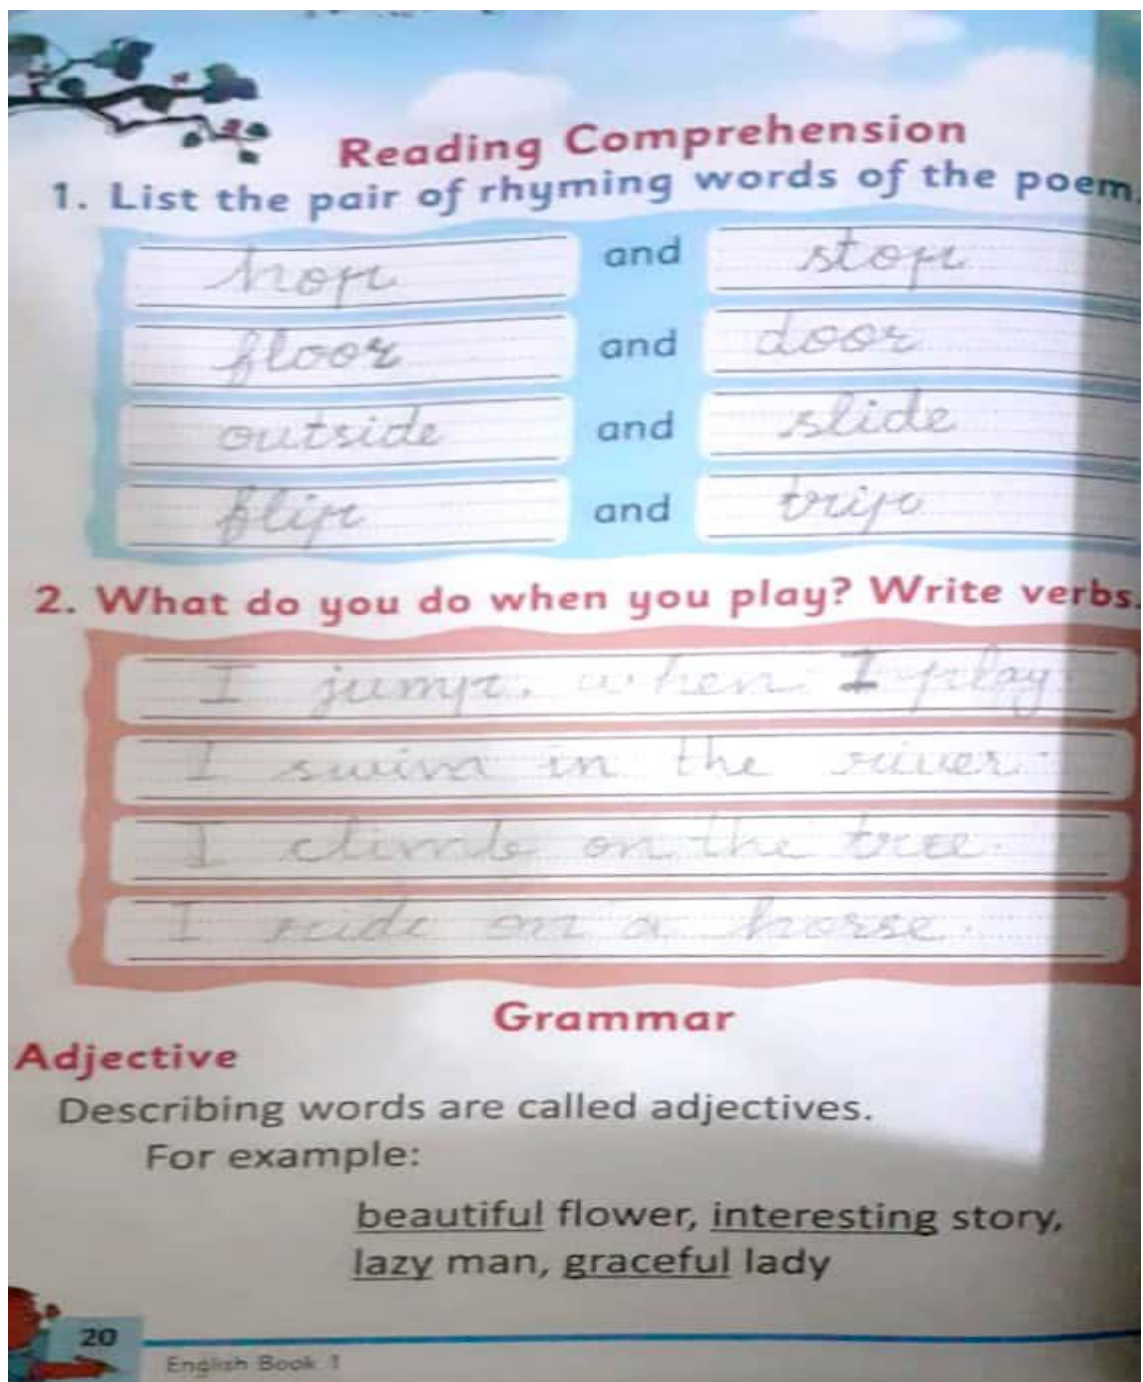 Reading Comprehension
1. List the pair of rhyming words of the poem.
hop and stop
floor and door
outside and slide
flip and trip
2. What do you do when you play? Write verbs.
I jump. when I play.
I swim in the river.
I climb on the tree.
I ride on a horse.
Grammar
Adjective
Describing words are called adjectives.
For example:
beautiful flower, interesting story,
lazy man, graceful lady
20
English Book 1